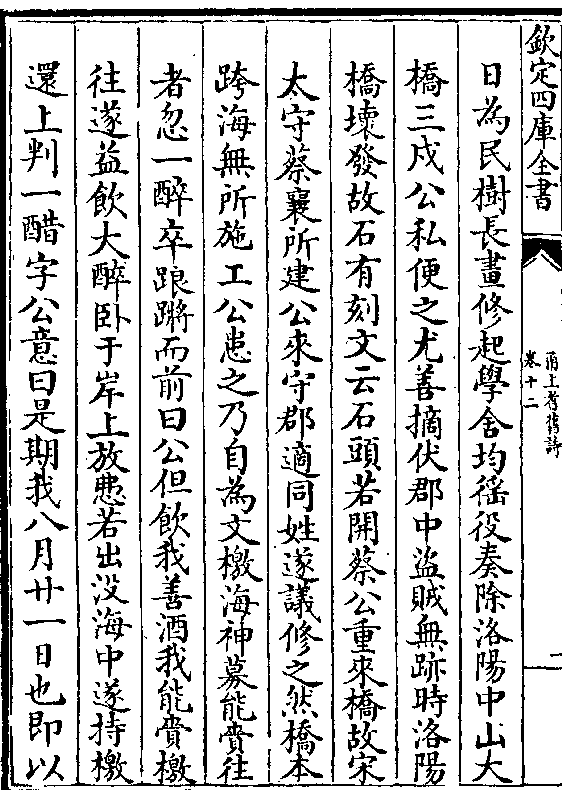 欽定四庫全書
甬上耆舊詩
卷十二
日為民樹長畫修起學舍均徭役奏除洛陽中山大
橋三戍公私便之尤善摘伏郡中盜賊無跡時洛陽
橋壞發故石有刻文云石頭若開蔡公重來橋故宋
太守蔡襄所建公來守郡適同姓遂議修之然橋本
跨海無所施工公患之乃自為文檄海神募能賫往
者忽一醉卒踉蹡而前曰公但飲我善酒我能賫檄
往遂益飲大醉卧于岸上放懸若出没海中遂持檄
還上判一醋字公意曰是期我八月廿一日也即以